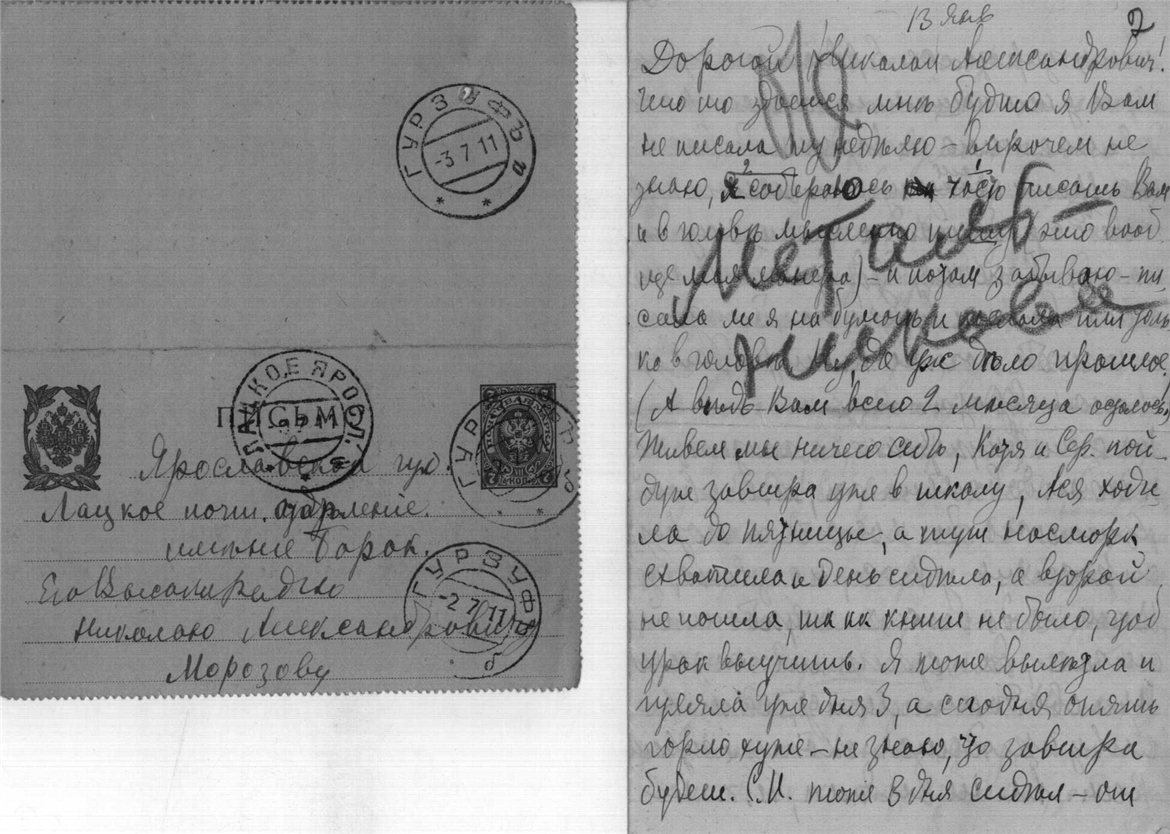 ГУРЗУФЪ
-3.7.11
а
ЛАЦКОЕ ЯРОСЛ.
ПИСЬМО
7 КОП.
ГУРЗУФЪ
б
Ярославская губ.
Лацкое почт. отдѣленіе.
имѣніе Борок.
Его Высокородію
Николаю Александровичу
Морозову
ГУРЗУФЪ
-2.7.11
б
13 Янв
2
Дорогой Николай Александрович!
Что то здается мнѣ будто я Вам
не писала ту недѣлю – впрочем не
знаю, я собираюсь часто писать Вам
и в головѣ мысленно пишу (это вооб
ще моя манера) – и потом забываю – пи
сала ли я на бумагѣ и послала или толь
ко в головѣ. Ну, да уж дѣло прошлое.
(А вѣдь Вам всего 2 мѣсяца осталось,
Живем мы ничего себѣ, Катя и Сер. пой
дут завтра уже в школу, Ася ходи
ла до пятницы, а тут насморк
схватила и день сидѣла, а второй
не пошла, т.к. книги не было, чтоб
урок выучить. Я тоже вылѣзла и
гуляла уже дня 3, а сегодня опять
горло хуже – не знаю, что завтра
будет. С.И. тоже 3 дня сидѣл – от